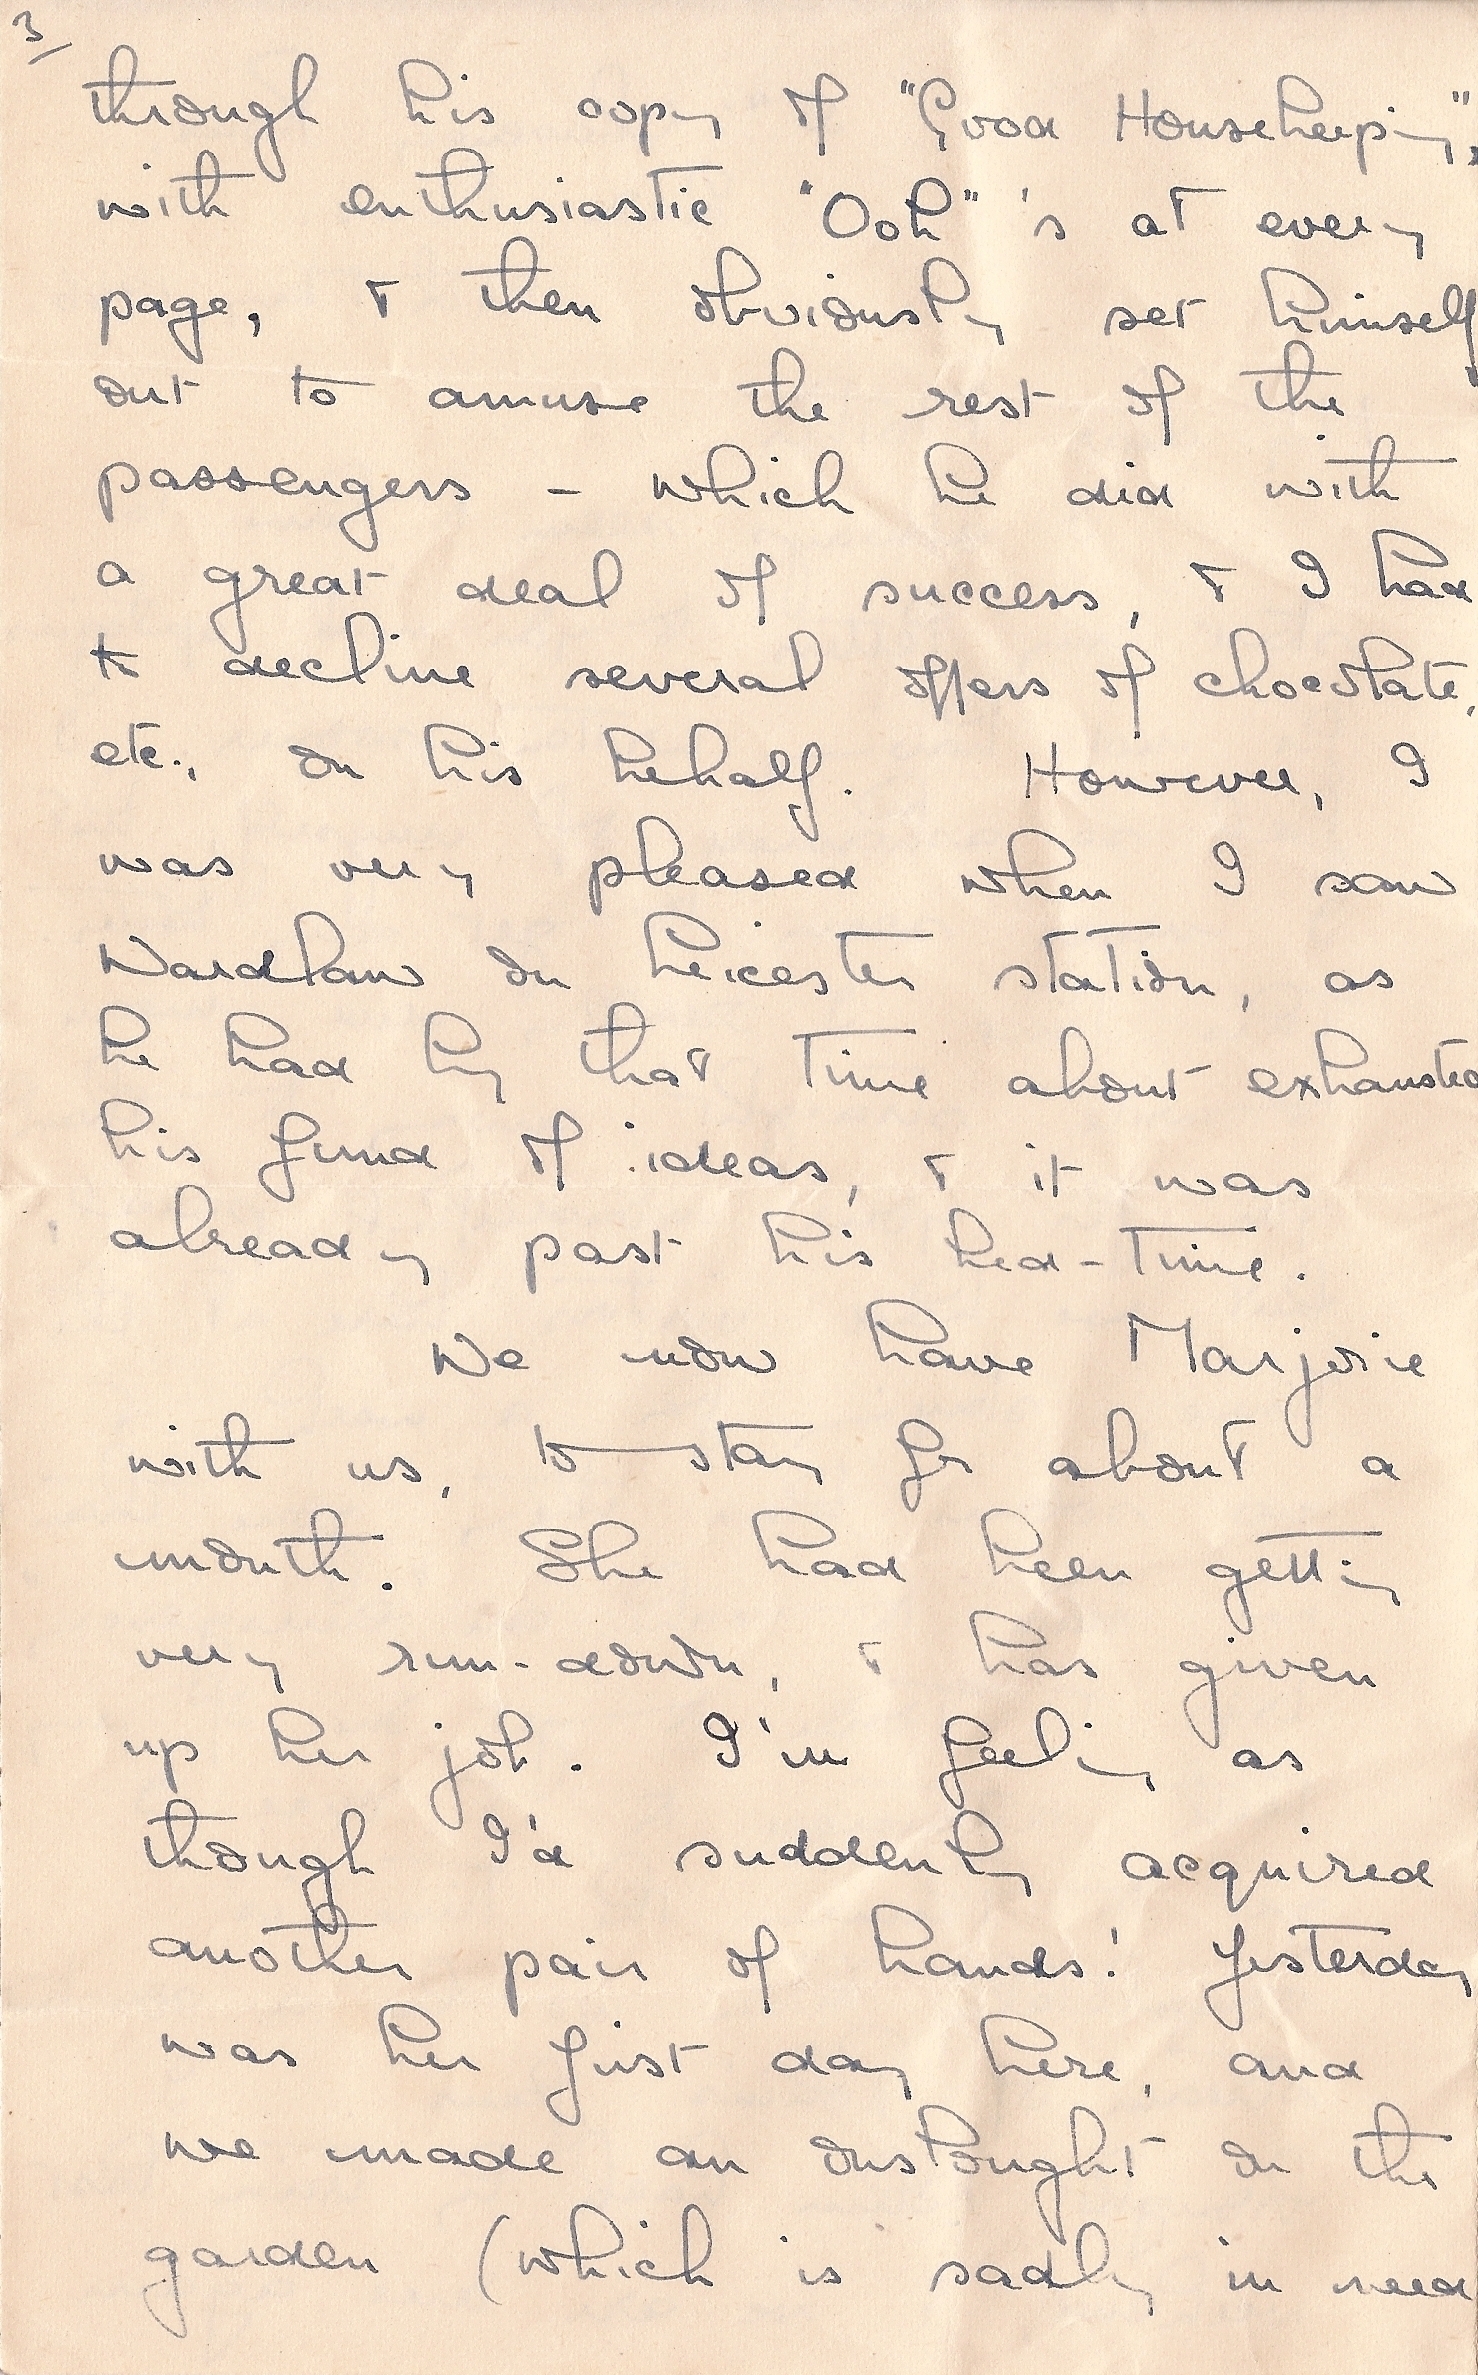 3
through his copy of "Good Housekeeping",
with enthusiastic "Ooh" 's at every
page, & then obviously set himself
out to amuse the rest of the
passengers - which he did with
a great deal of success, & I had
to decline several offers of chocolate,
etc., on his behalf. However, I
was very pleased when I saw
Wardlaw on Leicester station, as
he had by that time about exhausted
his fund of ideas, & it was
already past his bed-time.
We now have Marjorie
with us, to stay for about a
month. She had been getting
very run-down, & has given
up her job. I'm feeling as
though I'd suddenly acquired
another pair of hands! Yesterday
was her first day here, and
we made an onslought on the
garden (which is sadly in need